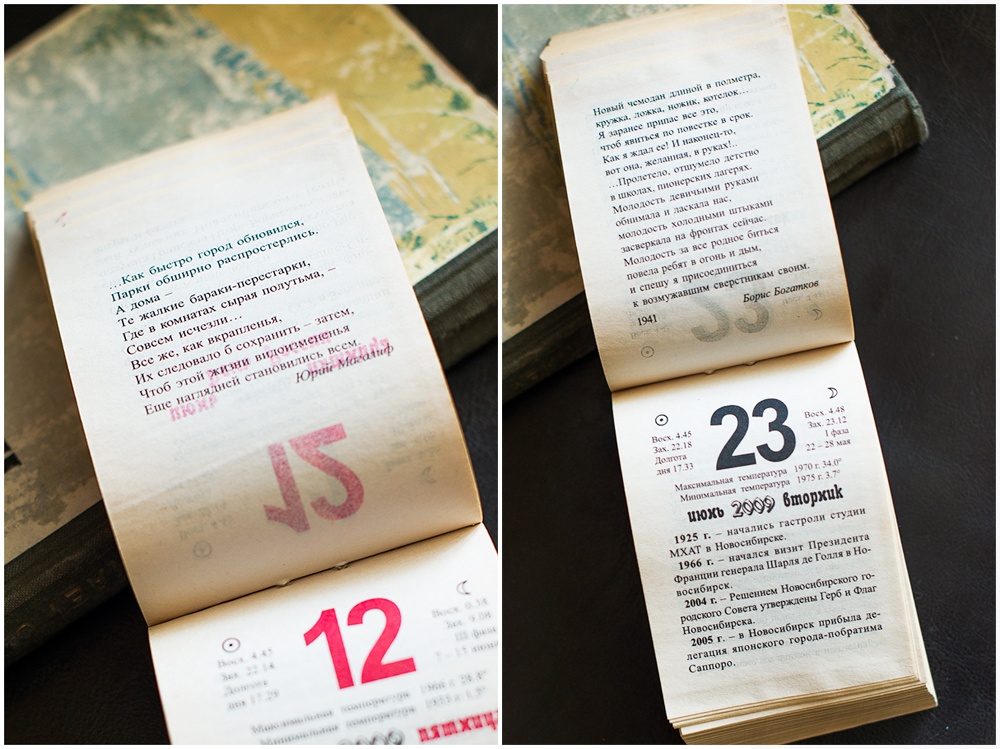 ...Как быстро город обновился,
Парки обширно распростерлись.
А дома –
Те жалкие бараки-перестарки,
Где в комнатах сырая полутьма, –
Совсем исчезли...
Все же, как вкрапленья,
Их следовало б сохранить – затем,
Чтоб этой жизни видоизмененья
Еще наглядней становились всем.
Юрий Магалиф
12
Восх. 4.45
Зах. 22.14
Долгота
дня 17.29
Восх. 0.38
Зах. 9.08
III фаза
7 – 15 июня
Максимальная температура
Минимальная температура
2009
Новый чемодан длиной в полметра,
кружка, ложка, ножик, котелок...
Я заранее припас все это,
чтоб явиться по повестке в срок.
Как я ждал ее! И наконец-то,
вот она, желанная, в руках!..
...Пролетело, отшумело детство
в школах, пионерских лагерях.
Молодость девичьими руками
обнимала и ласкала нас,
молодость холодными штыками
засверкала на фронтах сейчас.
Молодость за все родное биться
повела ребят в огонь и дым,
и спешу я присоединиться
к возмужавшим сверстникам своим.
Борис Богатков
1941
23
Восх. 4.45
Зах. 22.18
Долгота
дня 17.33
Восх. 4.48
Зах. 23.12
I фаза
22 – 28 мая
Максимальная температура 1970 г. 34.0°
Минимальная температура 1975 г. 3.7°
июнь 2009 вторник
1925 г. – начались гастроли студии
МХАТ в Новосибирске.
1966 г. – начался визит Президента
Франции генерала Шарля де Голля в Но-
восибирск.
2004 г. – Решением Новосибирского го-
родского Совета утверждены Герб и Флаг
Новосибирска.
2005 г. – в Новосибирск прибыла де-
легация японского города-побратима
Саппоро.